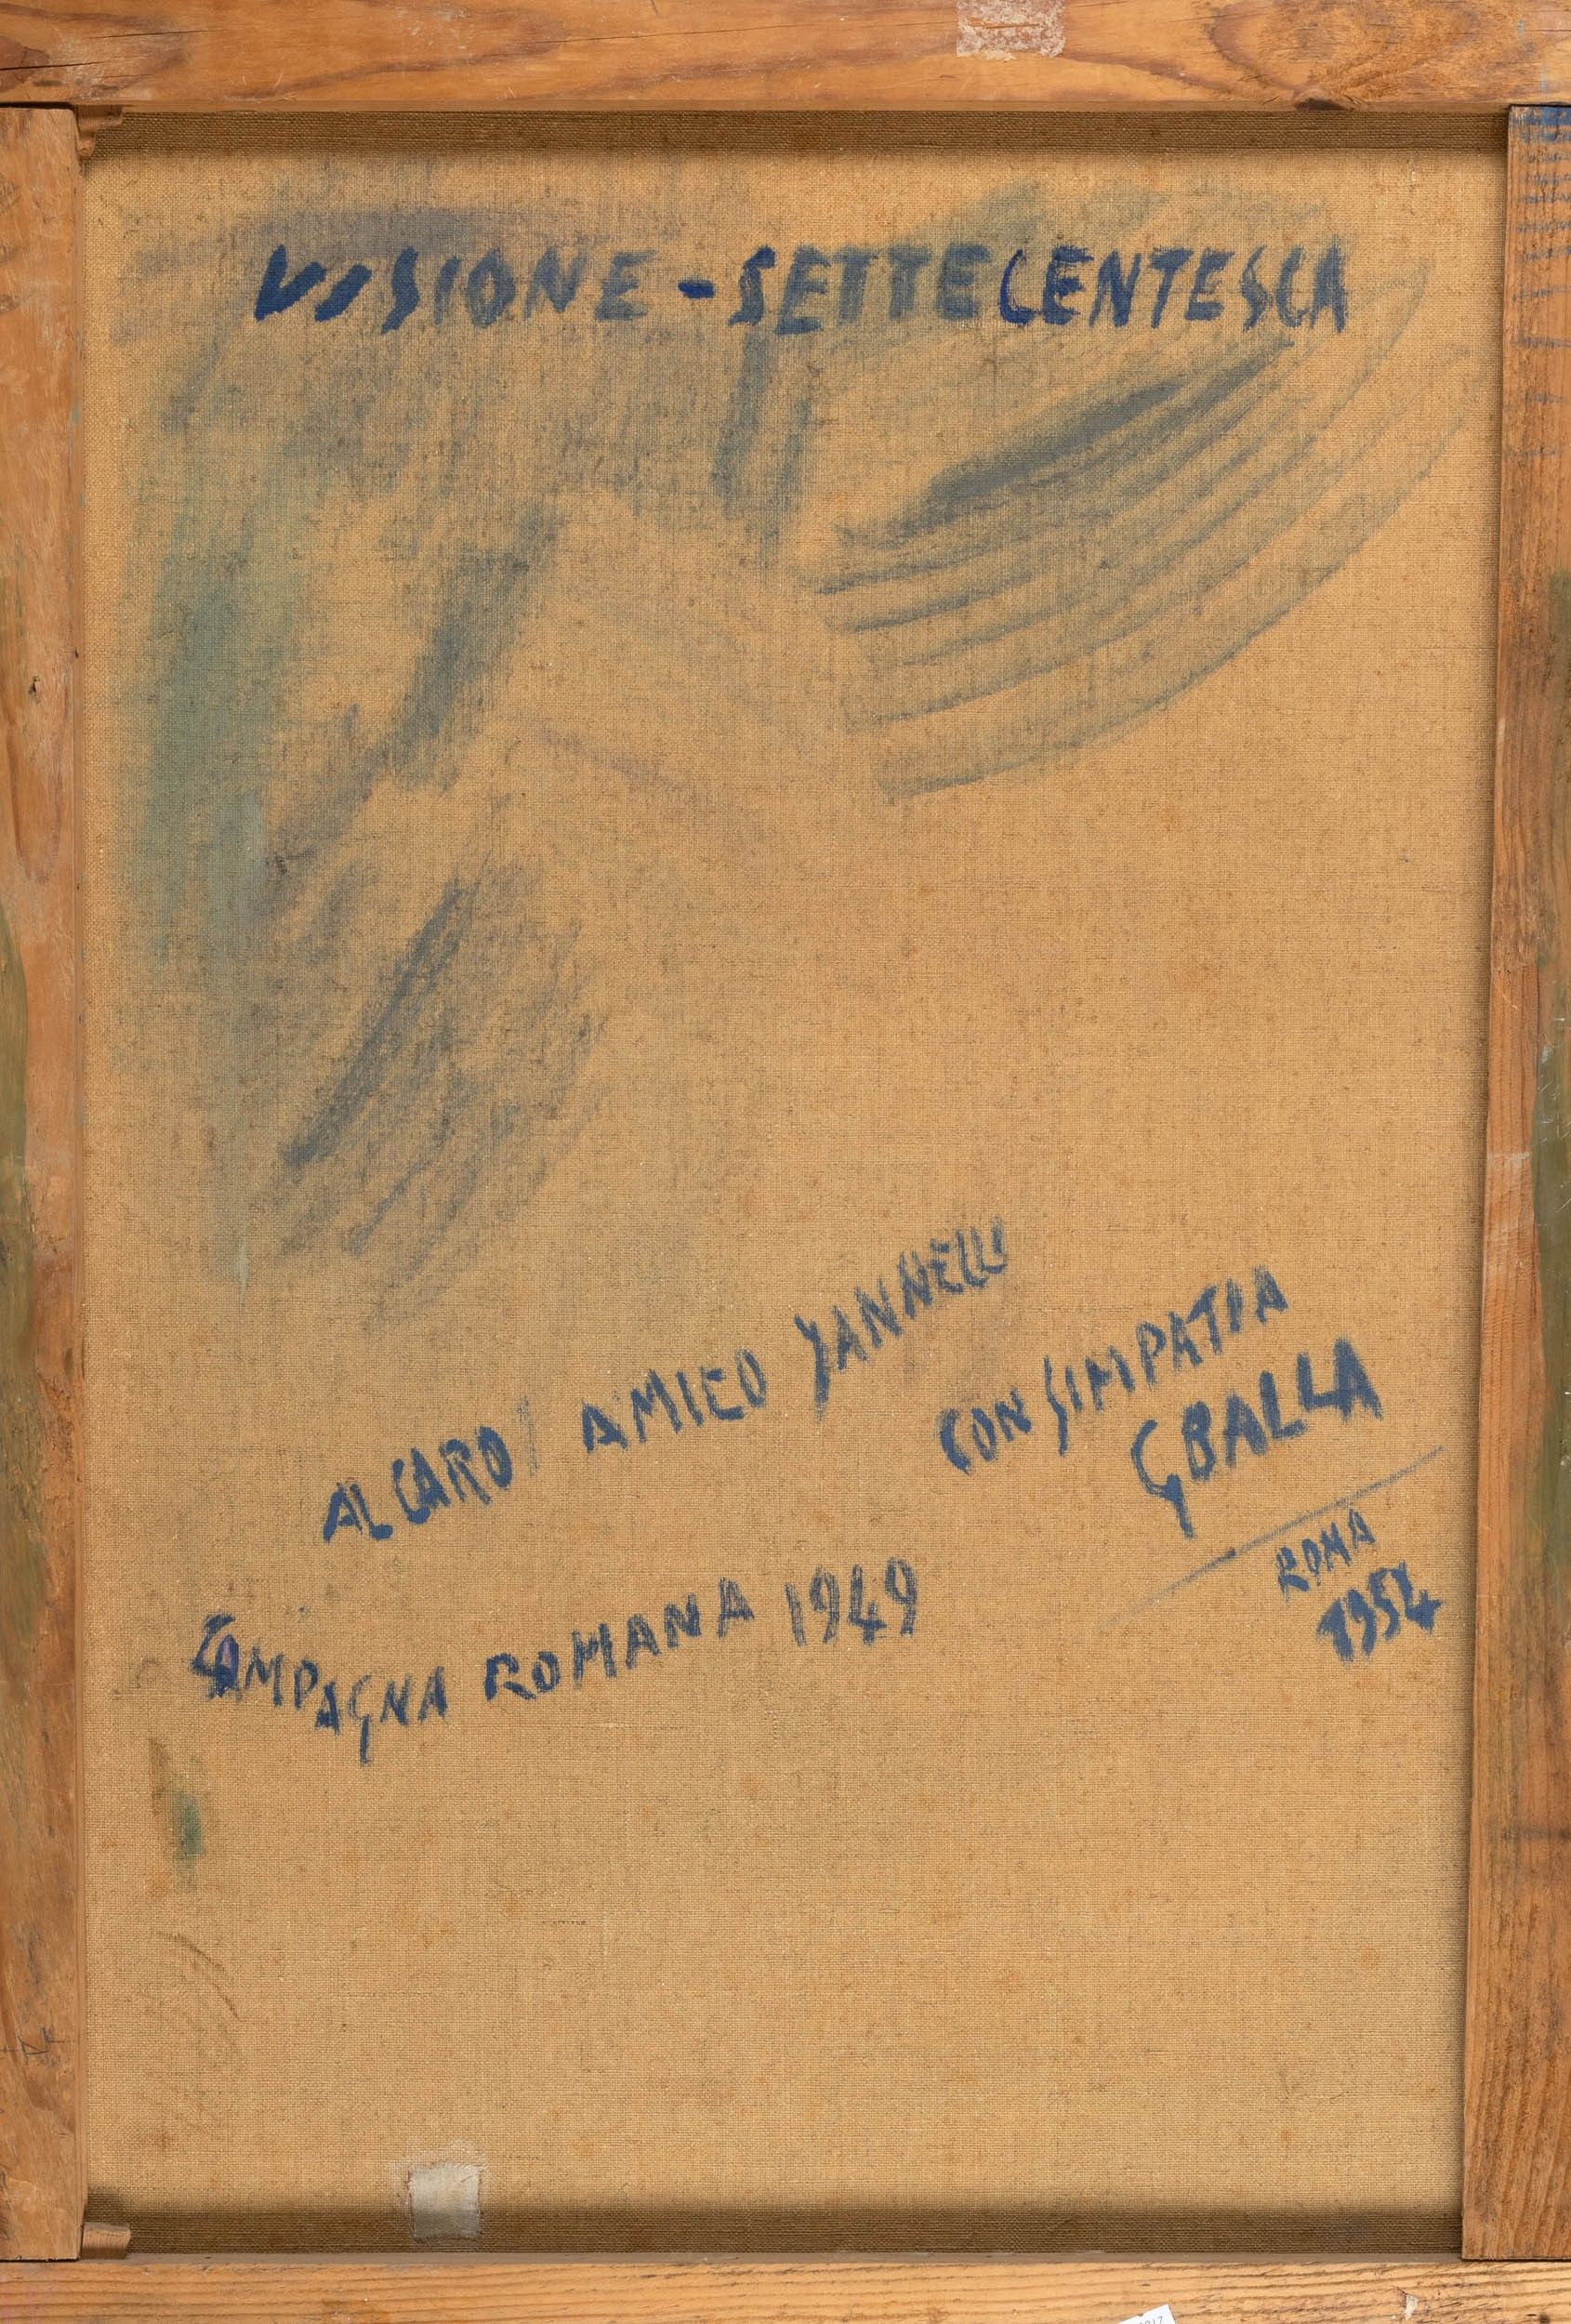 VISIONE - SETTECENTESCA
AL CARO AMICO YANNELLI
CON SIMPATIA
GBALLA
ROMA
1954
CAMPAGNA ROMANA 1949